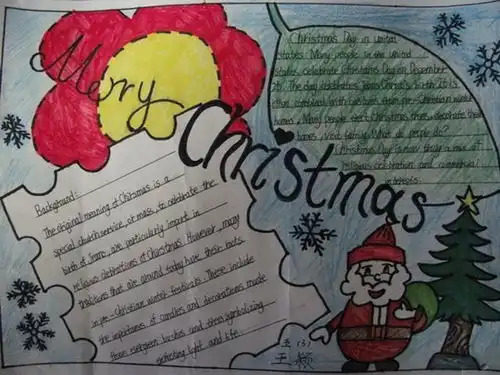 Merry
Christmas
Christmas Day in united
states. Many people in the united
states celebrate Christmas Day on December
25. The day celebrates Jesus Christ's birth. It is
thus combined with customs from pre-Christian winter
Many people erect Christmas trees, decorate their
homes, visit family. What do people do?
Christmas Day is now truly a mix of
religious celebration and commercial
Background:
The original meaning of Chirsmas is a
special church service, or mass, to celebrate the
birth of are particularly import in
religious celebrations of Christmas. However, many
traditions that are around today have their roots
in pre-Christian winter festivals. These include
the importance of candles and decorations made
from evergreen bushes and symbolizing
light and life.
五(3)
王颖